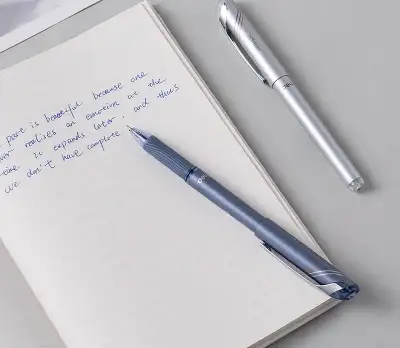 past is beautiful because one
realises an emotion at the
time. It expands later, and thus
we don't have complete